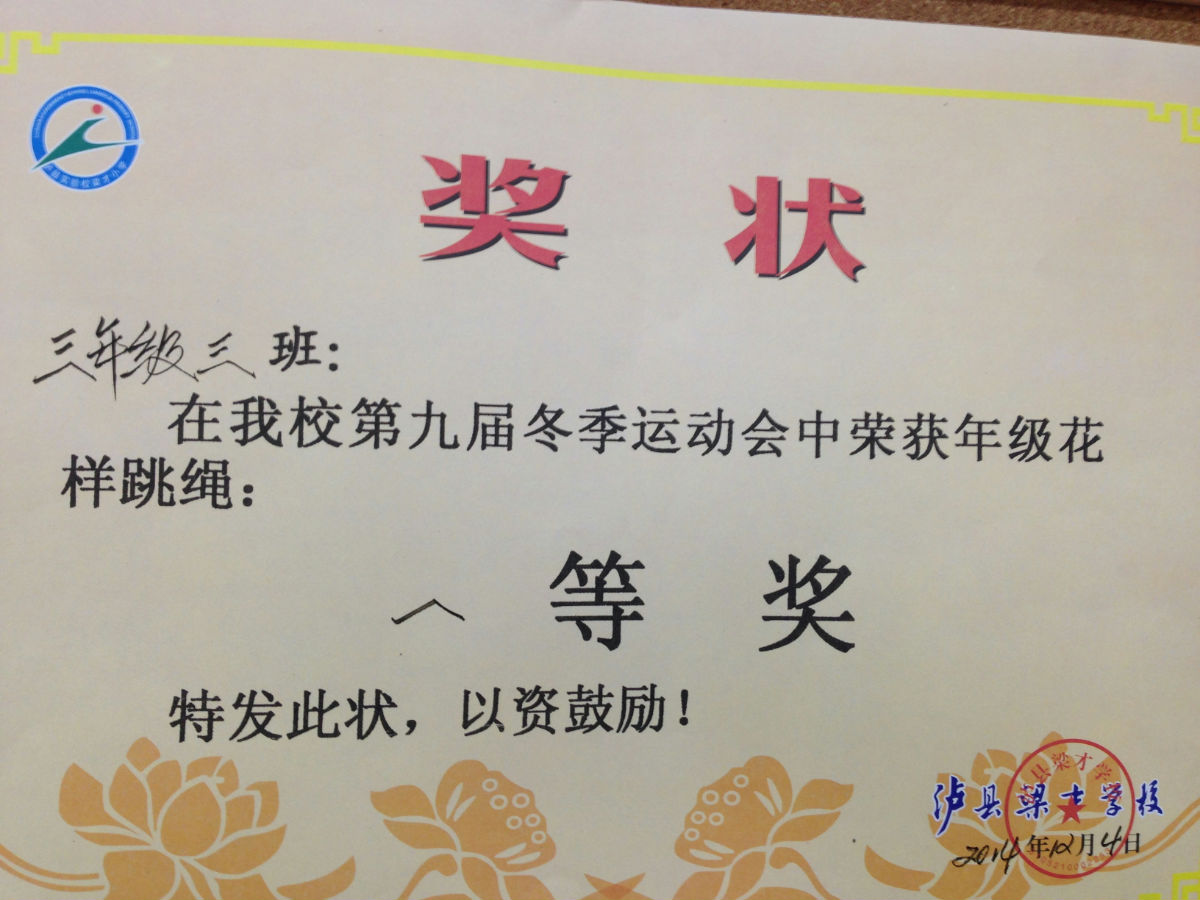 泸县实验校梁才小学
奖状
三年级三班：
在我校第九届冬季运动会中荣获年级花
样跳绳：
一等奖
特发此状，以资鼓励！
泸县梁才学校
2014年12月4日